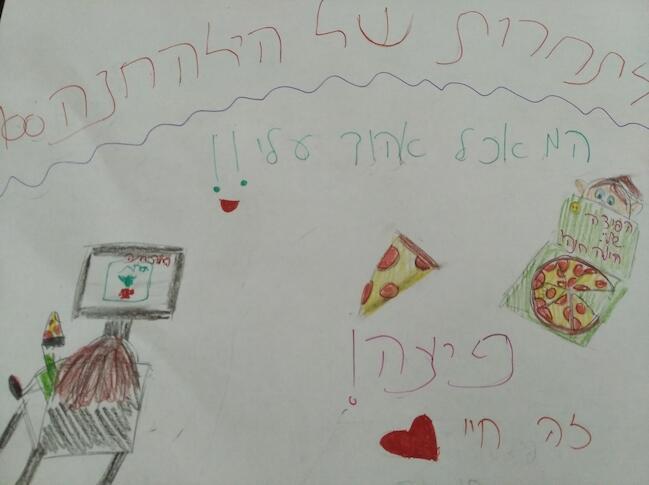 תחרות של הילה חנה
המאכל אהוב עלי!!
הפיצה
של:
פיצה!
זה חיי